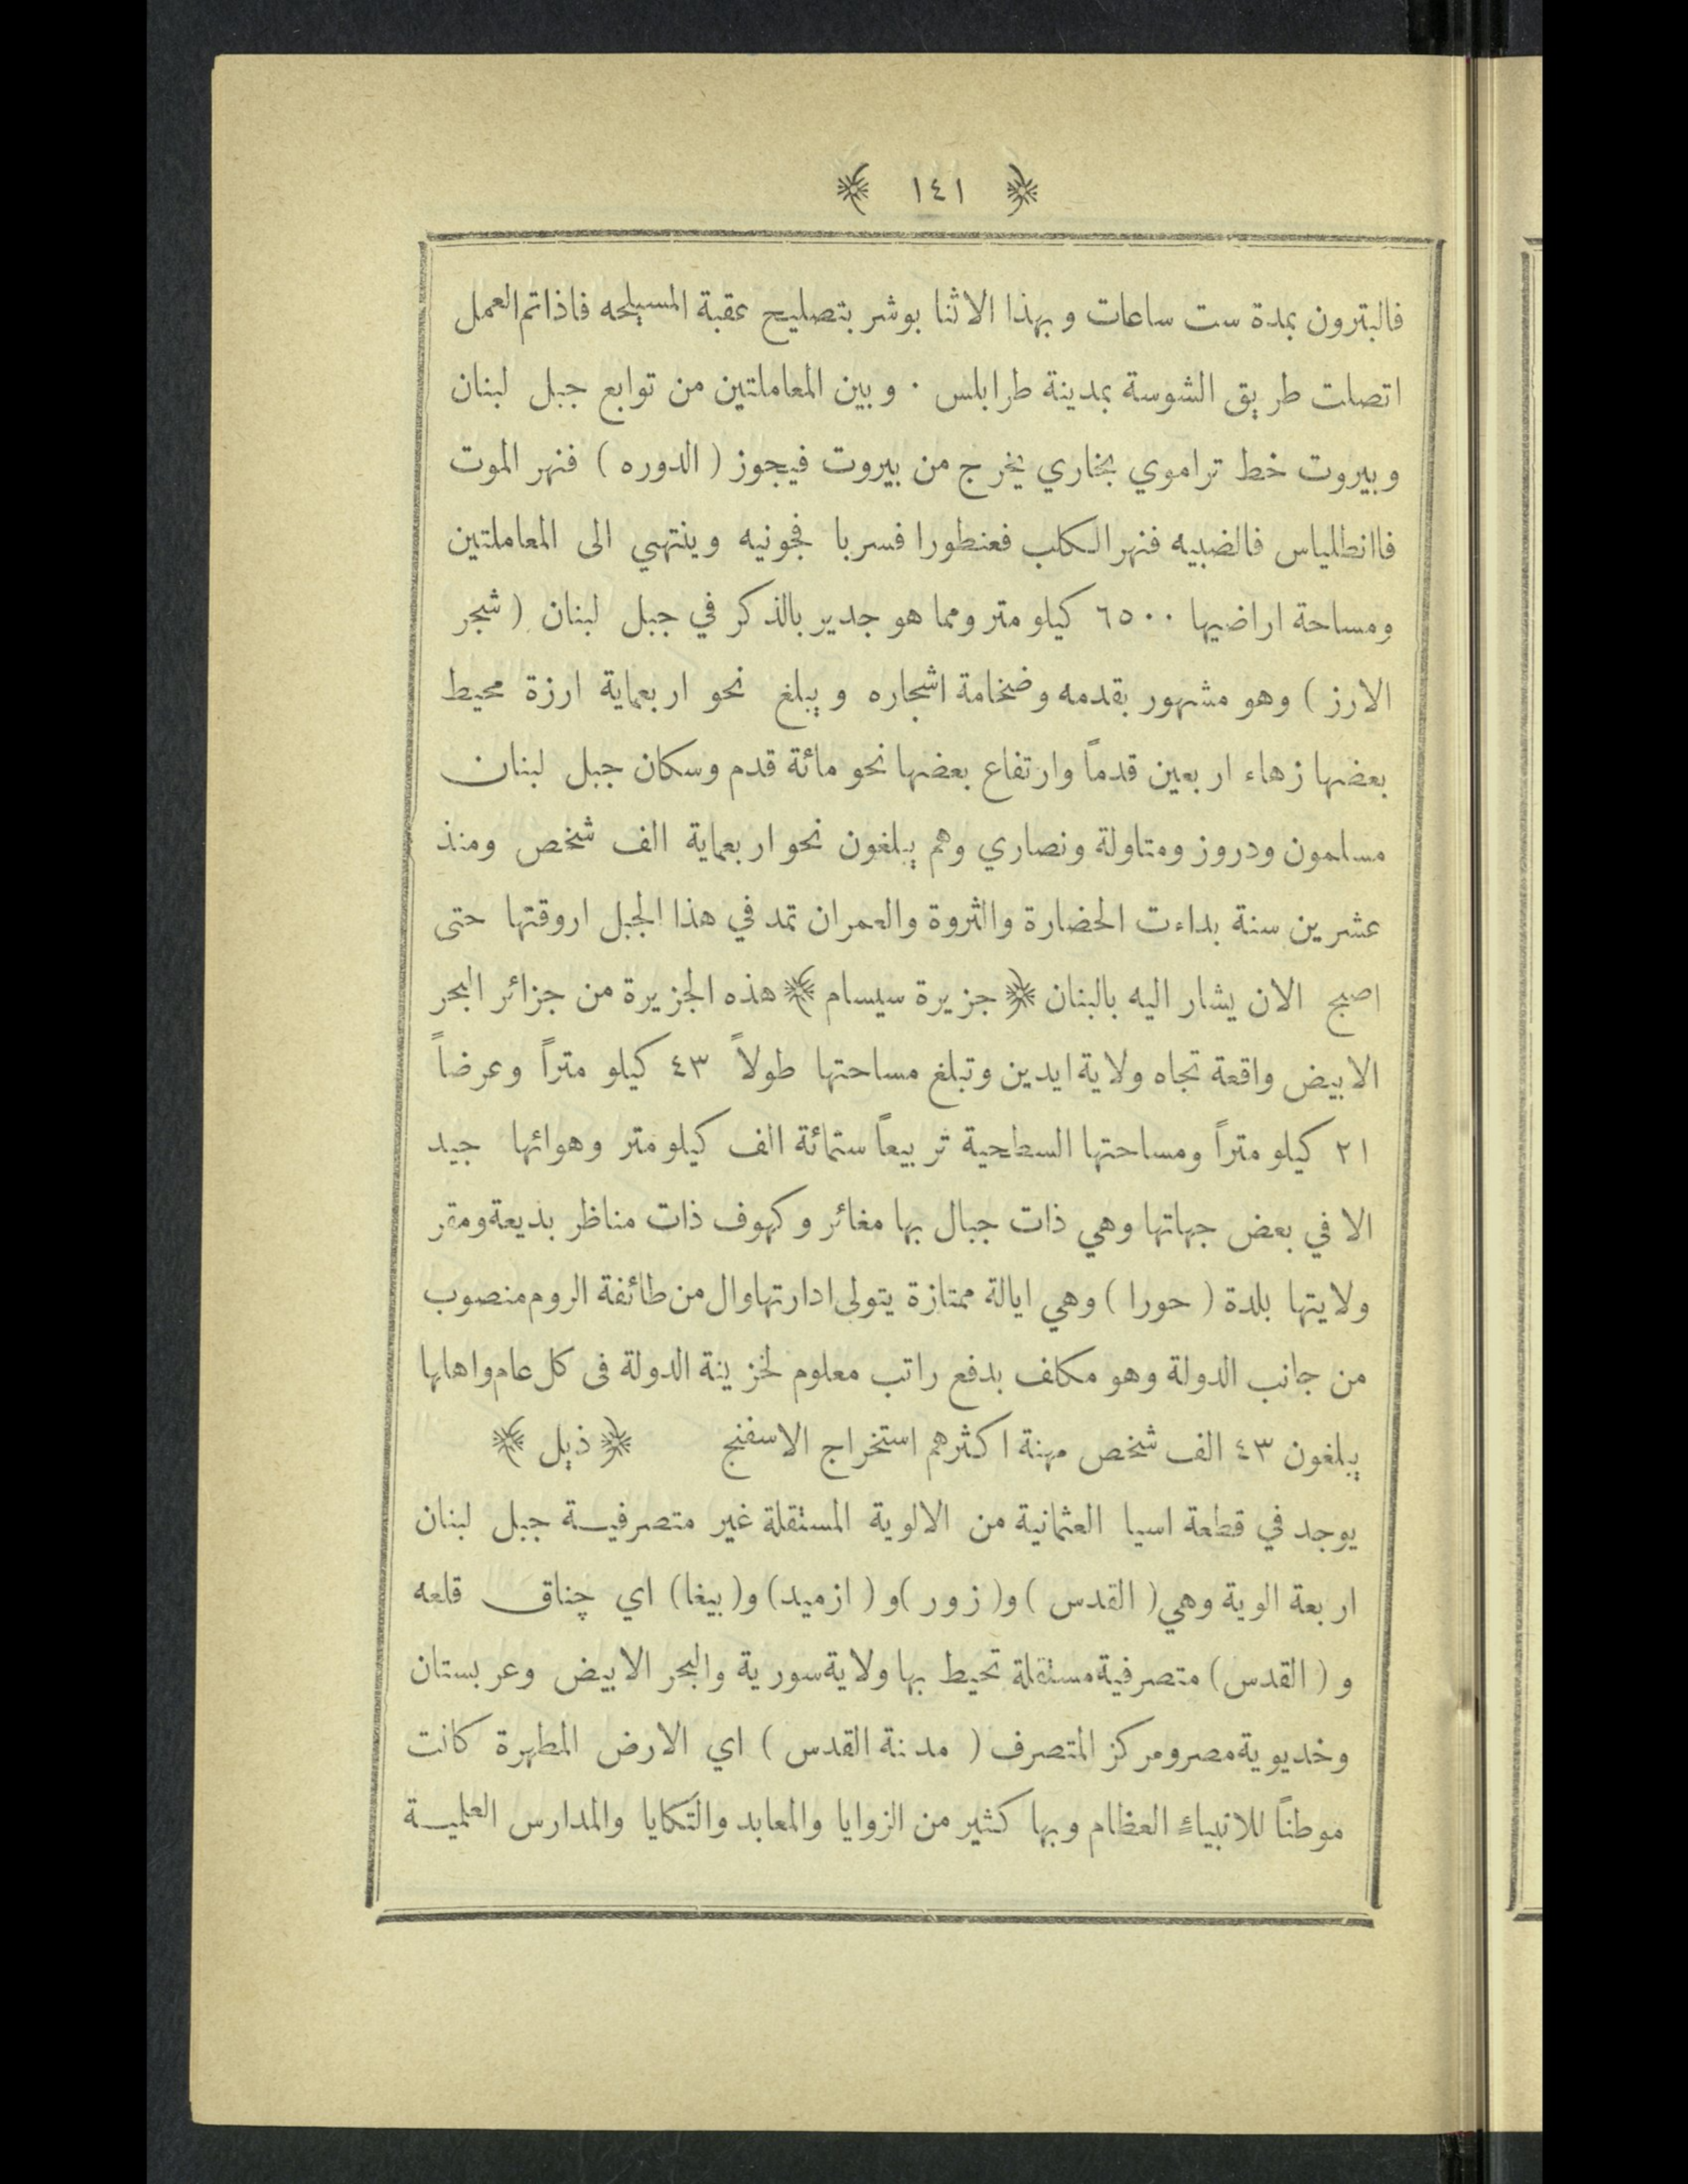 ﴿ ١٤١ ﴾
فالبترون بمدة ست ساعات وبهذا الاثنا بوشر بتصليح عقبة المسيلحه فاذاتم العمل
اتصلت طريق الشوسة بمدينة طرابلس ٠ وبين المعاملتين من توابع جبل لبنان
وبيروت خط تراموي بخاري يخرج من بيروت فيجوز ( الدوره ) فنهر الموت
فاانطلياس فالضبيه فنهر الكلب فعنطورا فسربا فجونيه وينتهي الى المعاملتين
ومساحة اراضيها ٦٥٠٠ كيلو متر ومما هو جدير بالذكر في جبل لبنان ( شجر
الارز ) وهو مشهور بقدمه وضخامة اشجاره ويبلغ نحو اربعماية ارزة محيط
بعضها زهاء اربعين قدماً وارتفاع بعضها نحو مائة قدم وسكان جبل لبنان
مسلمون ودروز ومتاولة ونصاري وهم يبلغون نحو اربعماية الف شخص ومنذ
عشرين سنة بداءت الحضارة والثروة والعمران تمد في هذا الجبل اروقتها حتى
اصبح الان يشار اليه بالبنان ﴿ جزيرة سيسام ﴾ هذه الجزيرة من جزائر البحر
الابيض واقعة تجاه ولاية ايدين وتبلغ مساحتها طولاً ٤٣ كيلو متراً وعرضاً
٢١ كيلو متراً ومساحتها السطحية تربيعاً ستمائة الف كيلو متر وهوائها جيد
الا في بعض جهاتها وهي ذات جبال بها مغائر وكهوف ذات مناظر بديعة ومقر
ولايتها بلدة ( حورا ) وهي ايالة ممتازة يتولى ادارتها وال من طائفة الروم منصوب
من جانب الدولة وهو مكلف بدفع راتب معلوم لخزينة الدولة فى كل عام واهالها
يبلغون ٤٣ الف شخص مهنة اكثرهم استخراج الاسفنج ﴿ ذيل ﴾
يوجد في قطعة اسيا العثمانية من الالوية المستقلة غير متصرفية جبل لبنان
اربعة الوية وهي ( القدس ) و( زور )و ( ازميد) و( بيغا) اي چناق قلعه
و ( القدس) متصرفية مستقلة تحيط بها ولاية سورية والبحر الابيض وعربستان
وخديوية مصر ومركز المتصرف ( مدنة القدس ) اي الارض المطهرة كانت
موطناً للانبياء العظام وبها كثير من الزوايا والمعابد والتكايا والمدارس العلمية